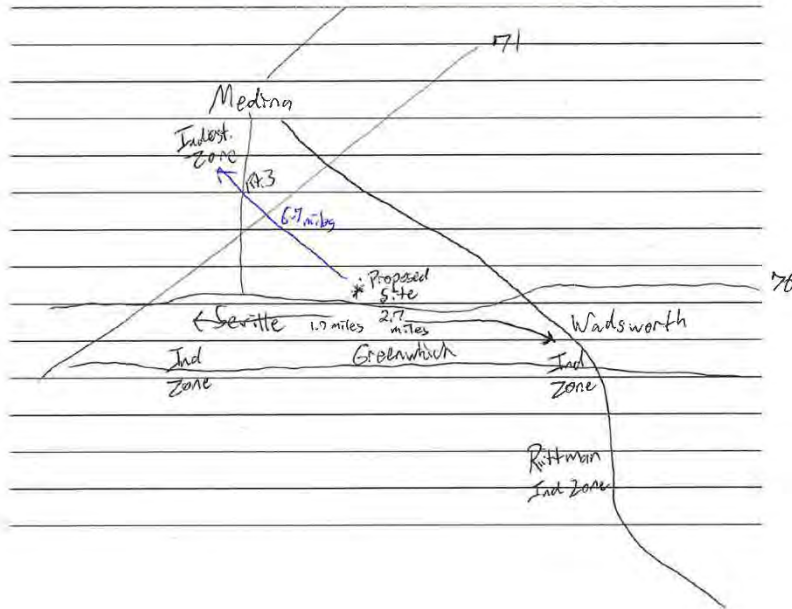 71
Medina
Indust.
Zone
Rt.3
6.7 miles
Proposed
Site
76
Seville
1.7 miles
2.7
miles
Wadsworth
Ind
Zone
Greenwhich
Ind
Zone
Rittman
Ind Zone